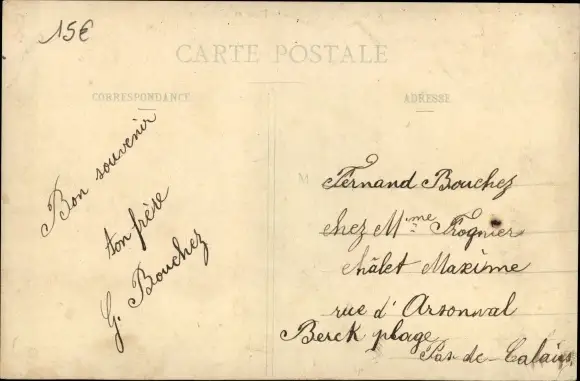 15€
CARTE POSTALE
CORRESPONDANCE
ADRESSE
Bon souvenir
ton frère
G. Bouchez
Fernand Bouchez
chez Mme Trognier
châlet Maxime
rue d'Arsonval
Berck plage
Pas-de-Calais